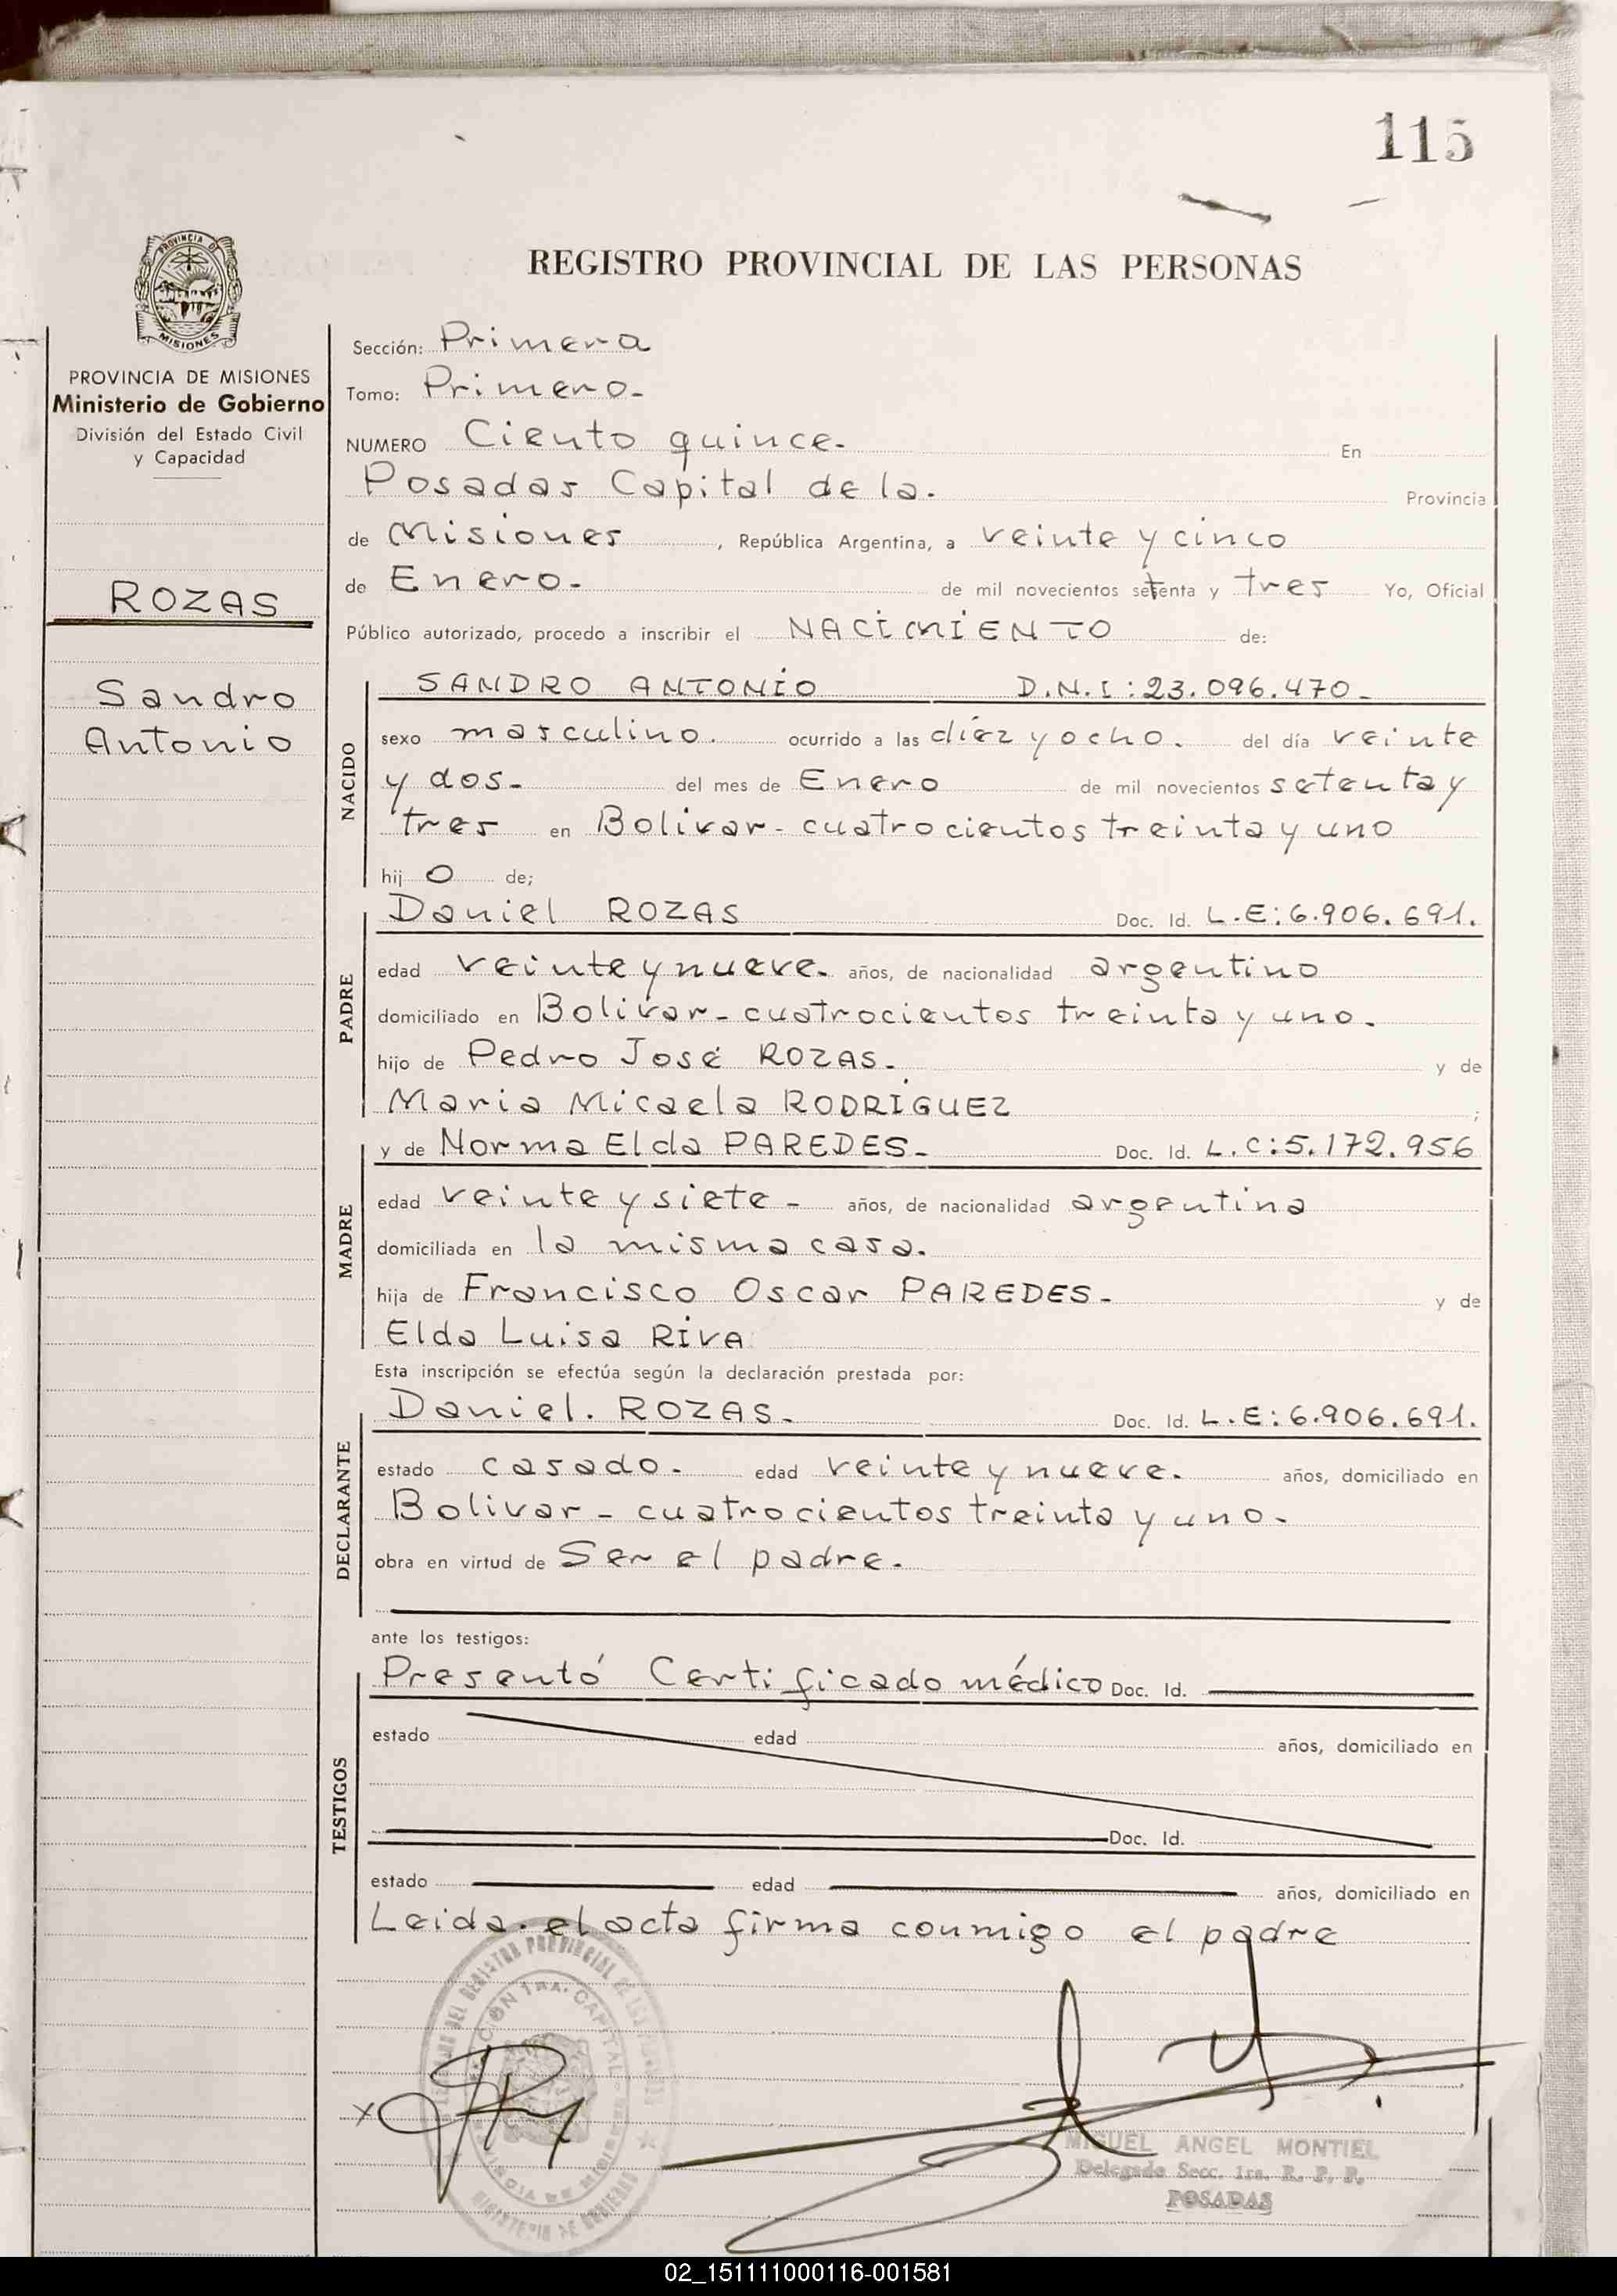 115
REGISTRO PROVINCIAL DE LAS PERSONAS
PROVINCIA DE
MISIONES
PROVINCIA DE MISIONES
Ministerio de Gobierno
División del Estado Civil
y Capacidad
ROZAS
Sandro
Antonio
Sección: Primera
Tomo: Primero.
NUMERO Ciento quince. En
Posadas Capital de la. Provincia
de Misiones, República Argentina, a veinte y cinco
de Enero. de mil novecientos setenta y tres Yo, Oficial
Público autorizado, procedo a inscribir el NACIMIENTO de:
NACIDO
SANDRO ANTONIO D.N.I: 23.096.470.
sexo masculino. ocurrido a las diez y ocho. del día veinte
y dos. del mes de Enero de mil novecientos setenta y
tres en Bolivar - cuatrocientos treinta y uno
hij o de;
PADRE
Daniel ROZAS Doc. Id. L.E: 6.906.691.
edad veinte y nueve. años, de nacionalidad argentino
domiciliado en Bolivar - cuatrocientos treinta y uno.
hijo de Pedro José ROZAS. y de
Maria Micaela RODRIGUEZ ;
MADRE
y de Norma Elda PAREDES. Doc. Id. L.C: 5.172.956
edad veinte y siete - años, de nacionalidad argentina
domiciliada en la misma casa.
hija de Francisco Oscar PAREDES. y de
Elda Luisa RIVA
Esta inscripción se efectúa según la declaración prestada por:
DECLARANTE
Daniel. ROZAS. Doc. Id. L.E: 6.906.691.
estado casado. edad veinte y nueve. años, domiciliado en
Bolivar - cuatrocientos treinta y uno.
obra en virtud de Ser el padre.
ante los testigos:
TESTIGOS
Presentó Certificado médico Doc. Id.
estado edad años, domiciliado en
Doc. Id.
estado edad años, domiciliado en
Leida. el acta firma conmigo el padre
MIGUEL ANGEL MONTIEL
Delegado Secc. 1ra. R. P. P.
POSADAS
02_151111000116-001581